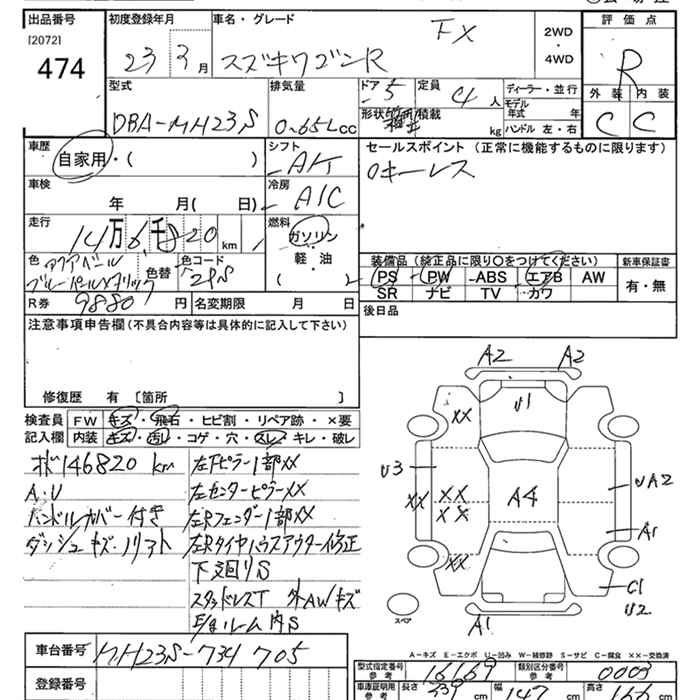 出品番号
[2072]
474
初度登録年月
23 3月
車名・グレード
スズキワゴンR
FX
2WD
・
4WD
評価点
R
外装 内装
C C
型式
DBA-MH23S
排気量
0.65Lcc
ドア 5
形状
定員 4人
積載 kg
ディーラー・並行
モデル
年式 年
ハンドル 左・右
車歴
自家用・( )
シフト
AT
セールスポイント (正常に機能するものに限ります)
キーレス
車検
年 月( 日)
冷房
A/C
走行
14万6千820km
燃料
ガソリン
・
軽・油
( )
色
ブルーパールメタリック
色替
色コード
R券 9880円
名変期限 月 日
装備品 (純正品に限り○をつけてください)
PS PW ABS エアB AW
SR ナビ TV カワ
新車保証書
有・無
後日品
注意事項申告欄(不具合内容等は具体的に記入して下さい)
修復歴 有 〔箇所 〕
検査員
記入欄
FW キズ・飛石・ヒビ割・リペア跡・×要
内装 キズ・汚れ・コゲ・穴・スレ・キレ・破レ
146820 km
A.U
ハンドルカバー付き
ダッシュキズ・リフト
左Fピラー1部XX
左センターピラーXX
左Rフェンダー1部XX
左Rタイヤハウスアウター修正
下廻りS
スタッドレスT 外AWキズ
E/gルーム内S
A2 A2
U1
XX
U3
XX
XX
XX
A4
UA2
A1
XX
C1
U2
A1
スペア
A-キズ E-エクボ U-凹み W-補修跡 S-サビ C-腐食 XX-交換済
車台番号
MH23S-734705
登録番号
型式指定番号
参考
16169
類別区分番号
参考
0003
車庫証明用
参考
長さ 339cm
幅 147cm
高さ
cm